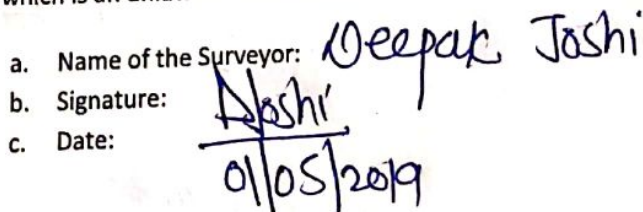 a. Name of the Surveyor: Deepak Joshi
b. Signature: DJoshi
c. Date: 01/05/2019